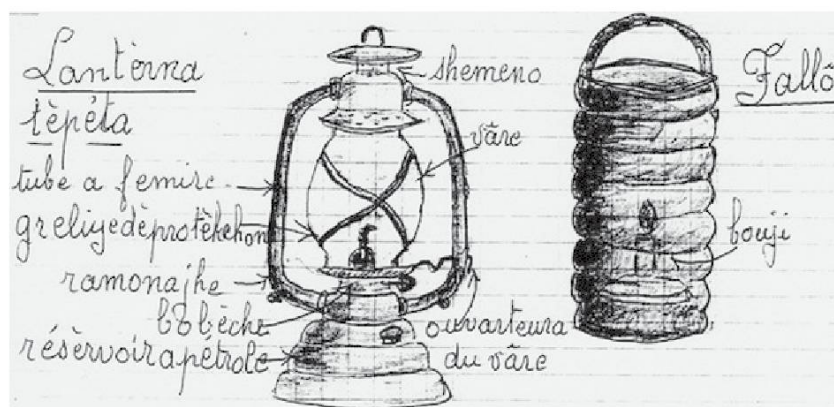 Lantèrna
tèpéta
shemeno
vâre
tube a femire
greliyedèprotèkchon
ramonajhe
bobèche
réservoirapétrole
ouvarteura
du vâre
Fallô
bouji